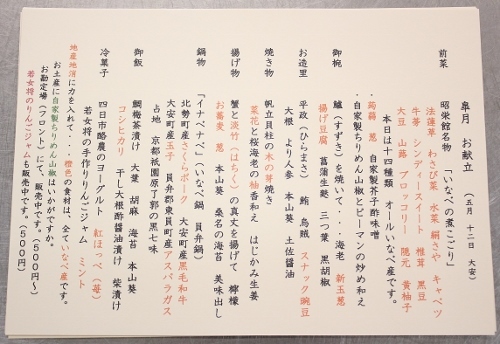 皐月　お献立　（五月　十二日　大安）
前菜　昭栄館名物　「いなべの煮こごり」
法蓮草　わさび菜　水菜　絹さや　キャベツ
牛蒡　シンディースイート　椎茸　黒豆
大豆　山蕗　ブロッコリー　隠元　黄柚子
本日は十四種類　オールいなべ産です。
・蒟蒻　葱　自家製芥子酢味噌
・自家製ちりめん山椒とピーマンの炒め和え
御椀　鱸（すずき）を焼いて・・・・海老　新玉葱
揚げ豆腐　菖蒲生麩　三つ葉　黒胡椒
お造里　平政（ひらまさ）　鮪　烏賊　スナック豌豆
大根　より人参　本山葵　土佐醤油
焼き物　帆立貝柱の木の芽焼き
菜花と桜海老の柚香和え　はじかみ生姜
揚げ物　蟹と淡竹（はちく）の真丈を揚げて　檸檬
お蕎麦　葱　本山葵　桑名の海苔　美味出し
鍋物　「イナベナベ」（いなべ鍋　員弁鍋）
比勢町産さくらポーク　大安町産黒毛和牛
大安町産玉子　員弁郡東員町産アスパラガス
占地　京都祇園原了郭の黒七味
御飯　鯛梅茶漬け　大葉　胡麻　海苔　本山葵
コシヒカリ　干し大根酢醤油漬け　柴漬け
冷菓子　四日市酪農のヨーグルト　紅ほっぺ（苺）
若女将の手作りりんごジャム　ミント
地産地消に力を入れて・・・・橙色の食材は、全ていなべ産です。
お土産に自家製ちりめん山椒はいかがですか。
お勘定場（フロント）にて、販売中です。（５００円〜）
若女将のりんごジャムも販売中です。（５００円）